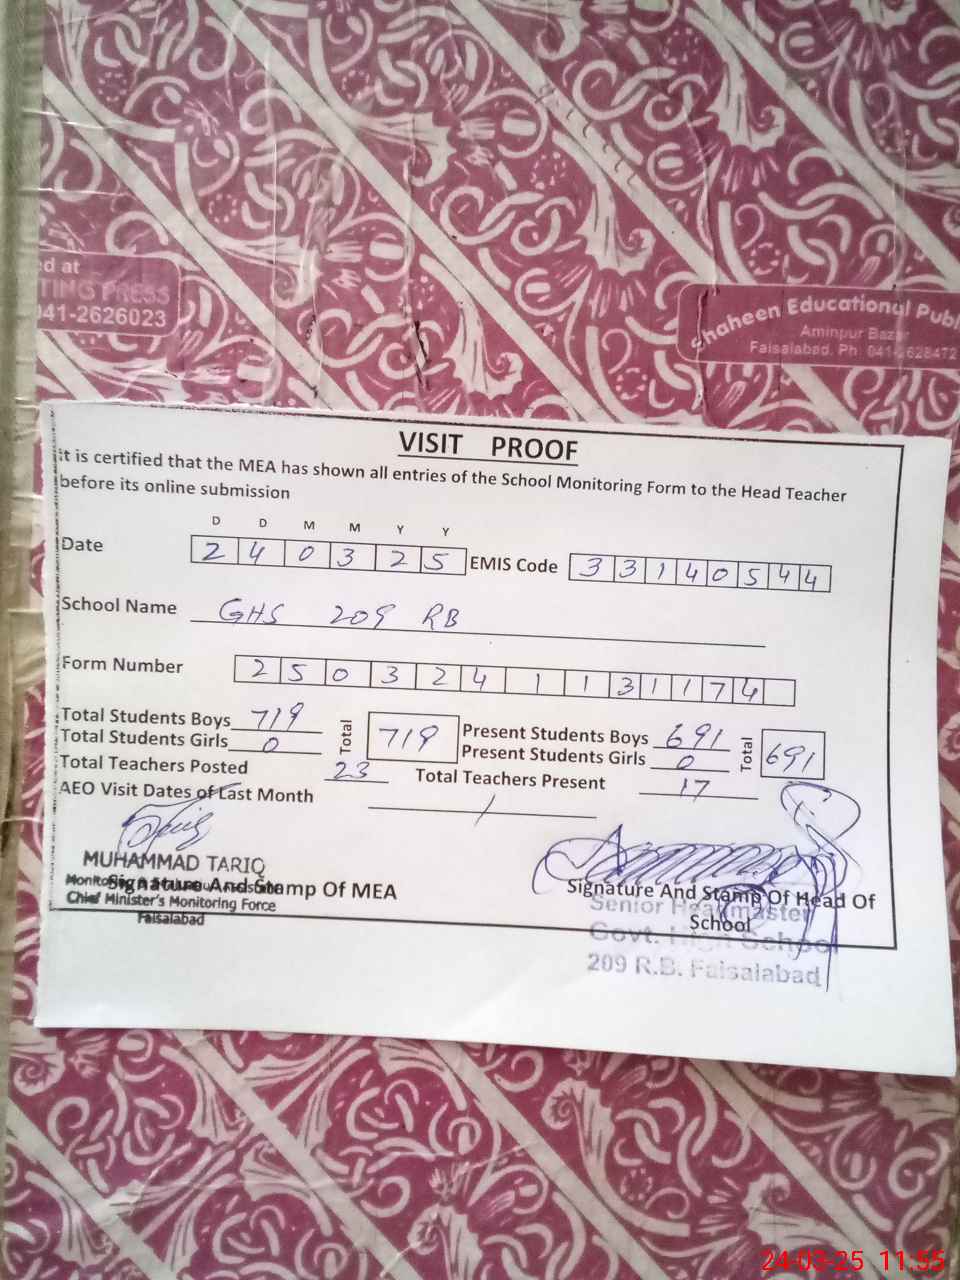 d at
TING PRESS
041-2626023
Shaheen Educational Publ
Aminpur Bazar
Faisalabad. Ph 041-2628472
VISIT PROOF
It is certified that the MEA has shown all entries of the School Monitoring Form to the Head Teacher
before its online submission
D D M M Y Y
Date 2 4 0 3 2 5 EMIS Code 3 3 1 4 0 5 4 4
School Name GHS 209 RB
Form Number 2 5 0 3 2 4 1 1 3 1 1 7 4
Total Students Boys 719 Total 719 Present Students Boys 691 Total 691
Total Students Girls 0 Present Students Girls 0
Total Teachers Posted 23 Total Teachers Present 17
AEO Visit Dates of Last Month /
MUHAMMAD TARIQ
Signature And Stamp Of MEA
Chief Minister's Monitoring Force
Faisalabad
Signature And Stamp Of Head Of
School
Senior Headmaster
Govt. High School
209 R.B. Faisalabad
24-03-25 11:55